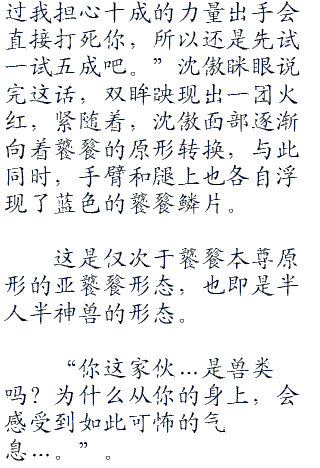 过我担心十成的力量出手会
直接打死你，所以还是先试
一试五成吧。”沈傲眯眼说
完这话，双眸映现出一团火
红，紧随着，沈傲面部逐渐
向着饕餮的原形转换，与此
同时，手臂和腿上也各自浮
现了蓝色的饕餮鳞片。
这是仅次于饕餮本尊原
形的亚饕餮形态，也即是半
人半神兽的形态。
“你这家伙…是兽类
吗？为什么从你的身上，会
感受到如此可怖的气
息…。”。